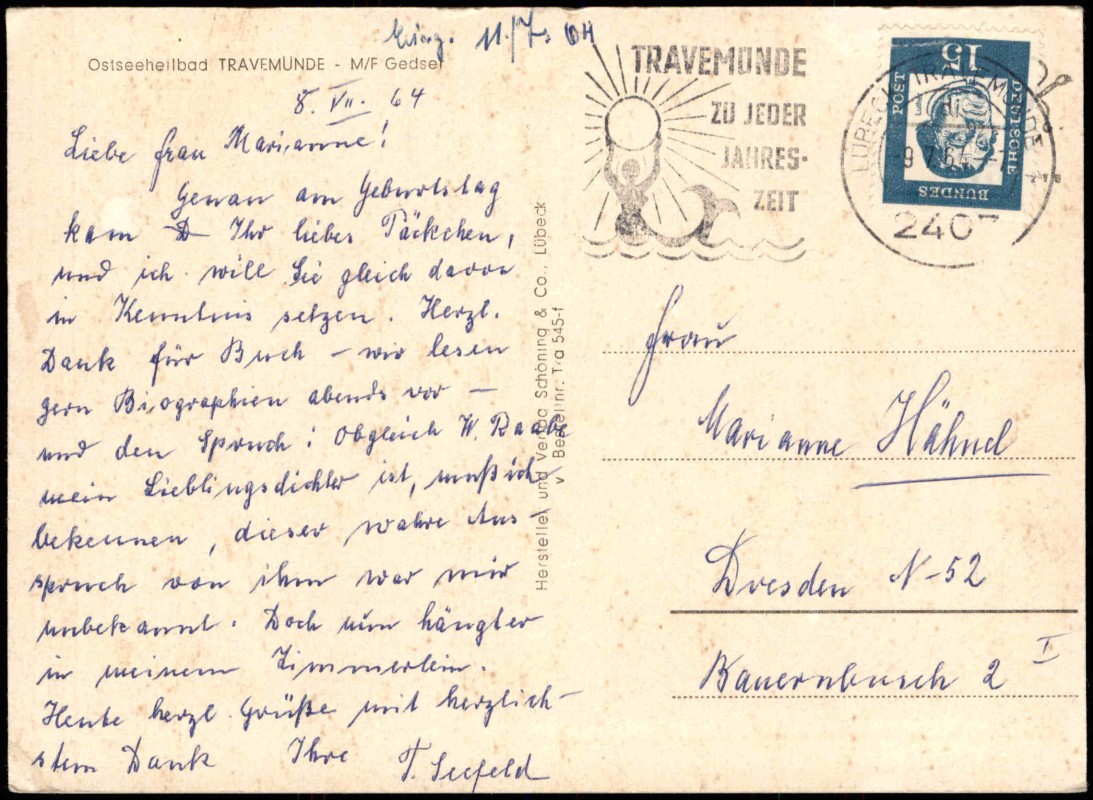 Eing. 11./7. 64
Ostseeheilbad TRAVEMÜNDE - M/F Gedser
8. VII. 64
Liebe Frau Marianne!
Genau am Geburtstag
kam D Ihr liebes Päckchen,
und ich will Sie gleich davon
in Kenntnis setzen. Herzl.
Dank für Buch – wir lesen
gern Biographien abends vor –
und den Spruch: Obgleich W. Raabe
mein Lieblingsdichter ist, muß ich
bekennen, dieser wahre Aus-
spruch von ihm war mir
unbekannt. Doch nun hängt er
in meinem Zimmerlein.
Heute herzl. Grüße mit herzlich-
stem Dank Ihre T. Seefeld
Hersteller und Verlag Schöning & Co., Lübeck
v Bestellnr. Tra 545-f
TRAVEMÜNDE
ZU JEDER
JAHRES-
ZEIT
LÜBECK-TRAVEMÜNDE
-9.7.64-7
2407
15
DEUTSCHE
BUNDES
POST
Frau
Marianne Hähnel
Dresden N-52
Bauernbusch 2 I